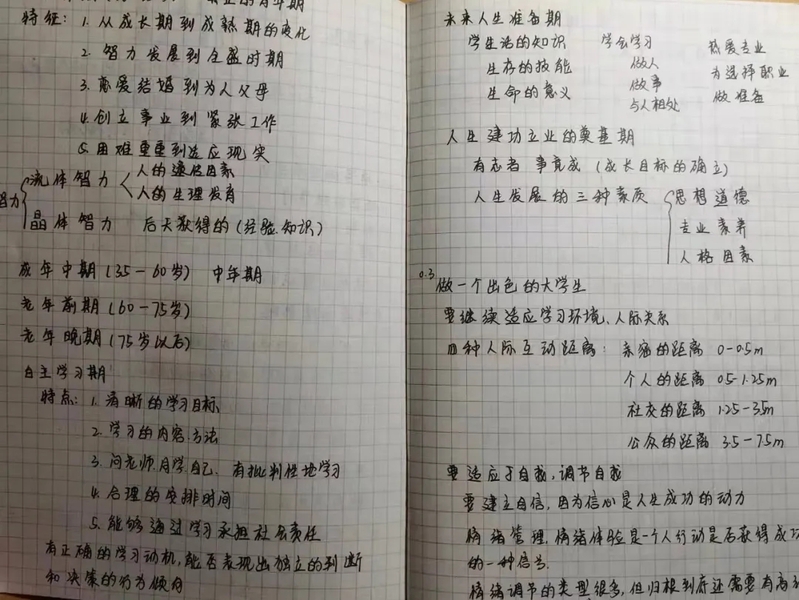 特征: 1. 从成长期到成熟期的变化
2. 智力发展到全盛时期
3. 恋爱结婚到为人父母
4. 创立事业到紧张工作
5. 困难重重到适应现实
智力 流体智力 人的遗传因素
人的生理发育
晶体智力 后天获得的(经验.知识)
成年中期(35-60岁) 中年期
老年前期(60-75岁)
老年晚期(75岁以后)
自主学习期
特点: 1. 清晰的学习目标
2. 学习的内容.方法
3. 问老师.自学.自己、有批判性地学习
4. 合理的安排时间
5. 能够通过学习承担社会责任
有正确的学习动机,能否表现出独立的判断
和决策的行为倾向
未来人生准备期
学生活的知识 学会学习 热爱专业
生存的技能 做人 为选择职业
生命的意义 做事 做准备
与人相处
人生建功立业的奠基期
有志者事竟成(成长目标的确立)
人生发展的三种素质 思想道德
专业素养
人格因素
0.3 做一个出色的大学生
要继续适应学习环境、人际关系
四种人际互动距离: 亲密的距离 0-0.5m
个人的距离 0.5-1.25m
社交的距离 1.25-3.5m
公众的距离 3.5-7.5m
要适应于自我,调节自我
要建立自信,因为信心是人生成功的动力
情绪管理,情绪体验是一个人行动是否获得成功
的一种信号.
情绪调节的类型很多,但归根到底还需要有高